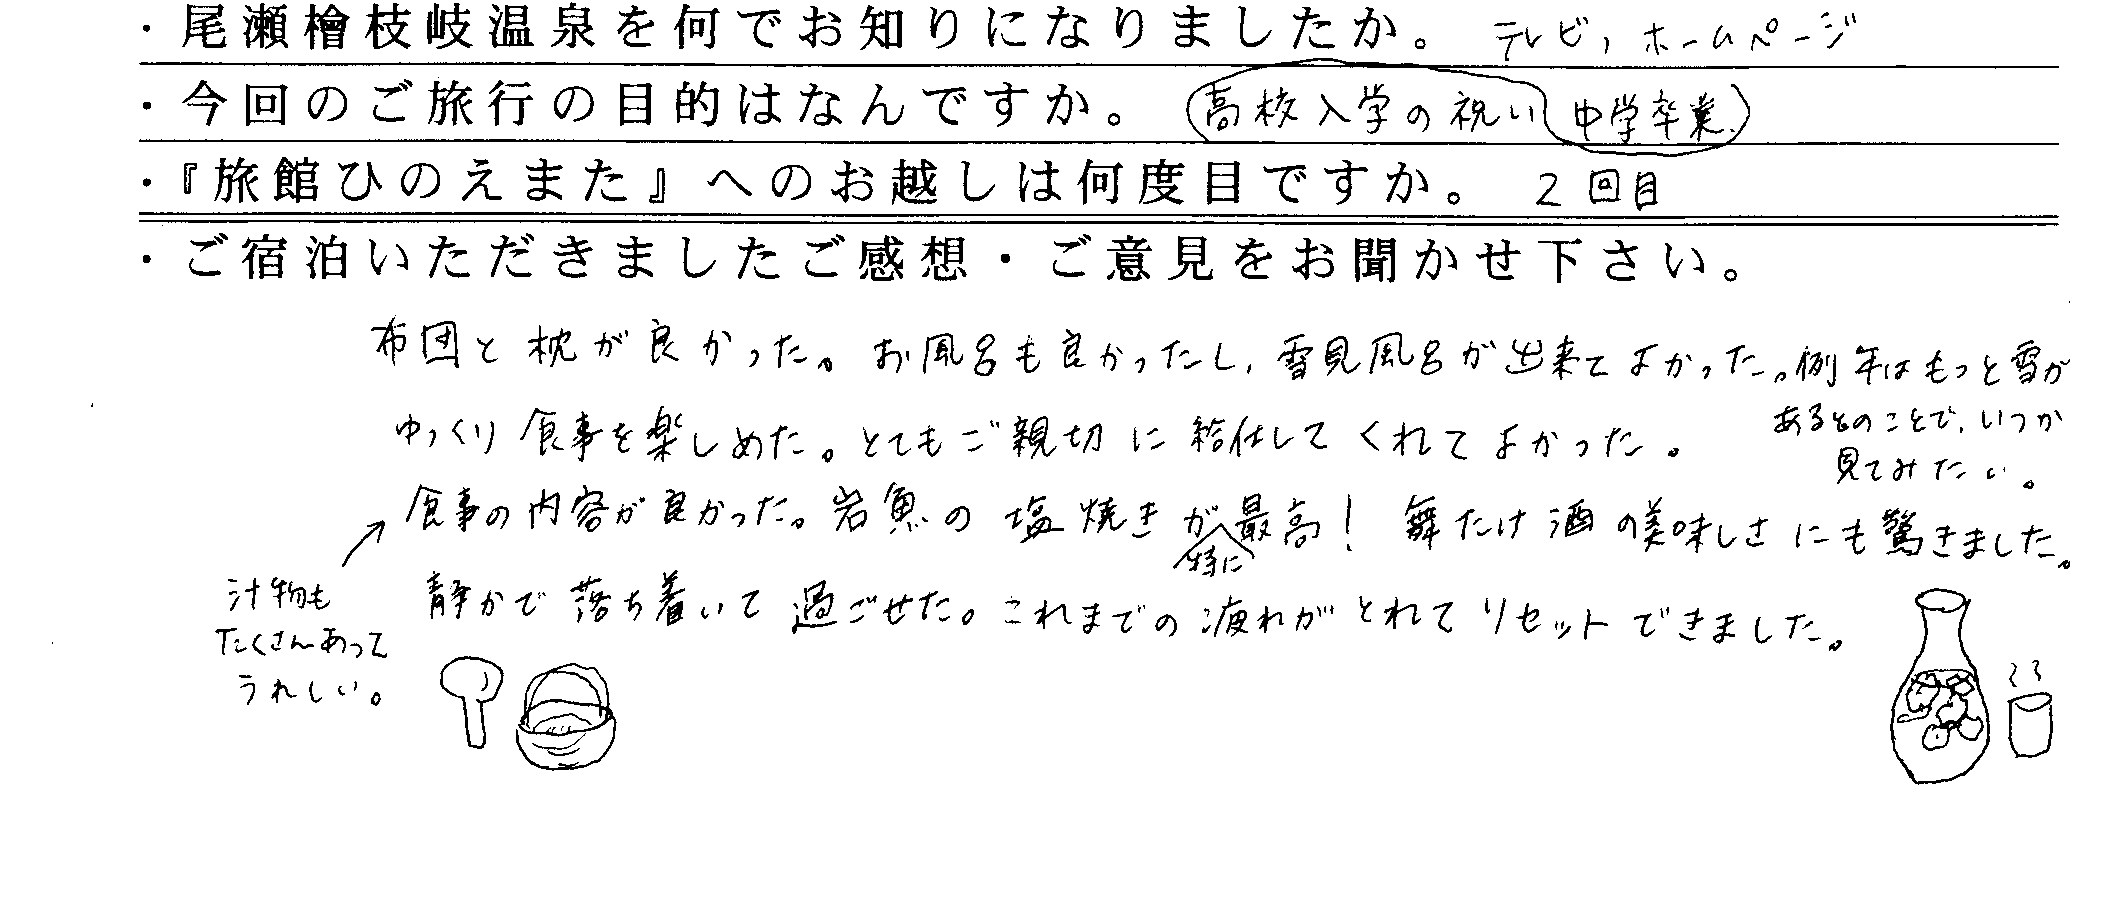 ・尾瀬檜枝岐温泉を何でお知りになりましたか。 テレビ、ホームページ
・今回のご旅行の目的はなんですか。 高校入学の祝い 中学卒業、
・『旅館ひのえまた』へのお越しは何度目ですか。 2回目
・ご宿泊いただきましたご感想・ご意見をお聞かせ下さい。
布団と枕が良かった。お風呂も良かったし、雪見風呂が出来てよかった。例年はもっと雪が
あるとのことで、いつか
見てみたい。
ゆっくり食事を楽しめた。とてもご親切に給仕してくれてよかった。
食事の内容が良かった。岩魚の塩焼きが特に最高!舞たけ酒の美味しさにも驚きました。
汁物も
たくさんあって
うれしい。
静かで落ち着いて過ごせた。これまでの疲れがとれてリセットできました。